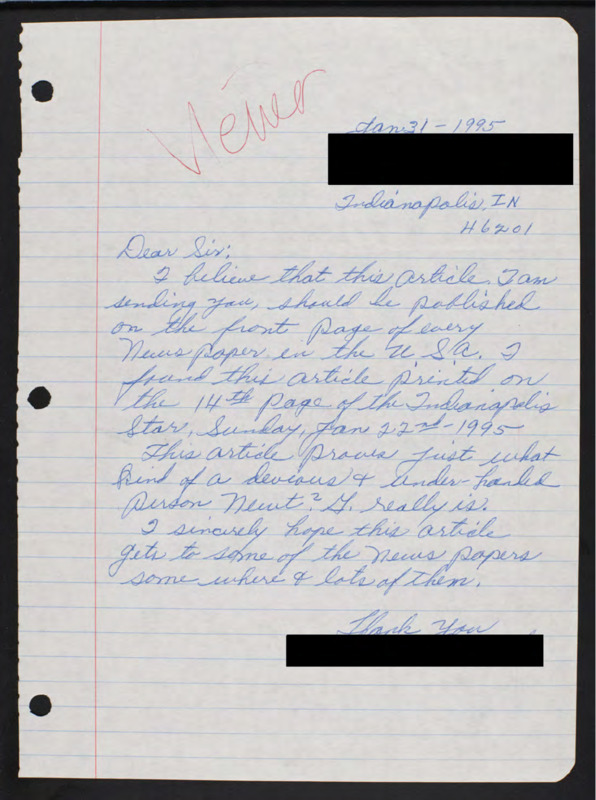 Jan 31 - 1995
Indianapolis, IN
46201
Dear Sir:
I believe that this article, I am
sending you, should be published
on the front page of every
News paper in the U S A. I
found this article printed on
the 14th page of the Indianapolis
Star, Sunday, Jan 22nd - 1995
This article proves just what
kind of a devious & under-handed
person Newt? G. really is.
I sincerly hope this article
gets to some of the News papers
some where & lots of them.
Thank You